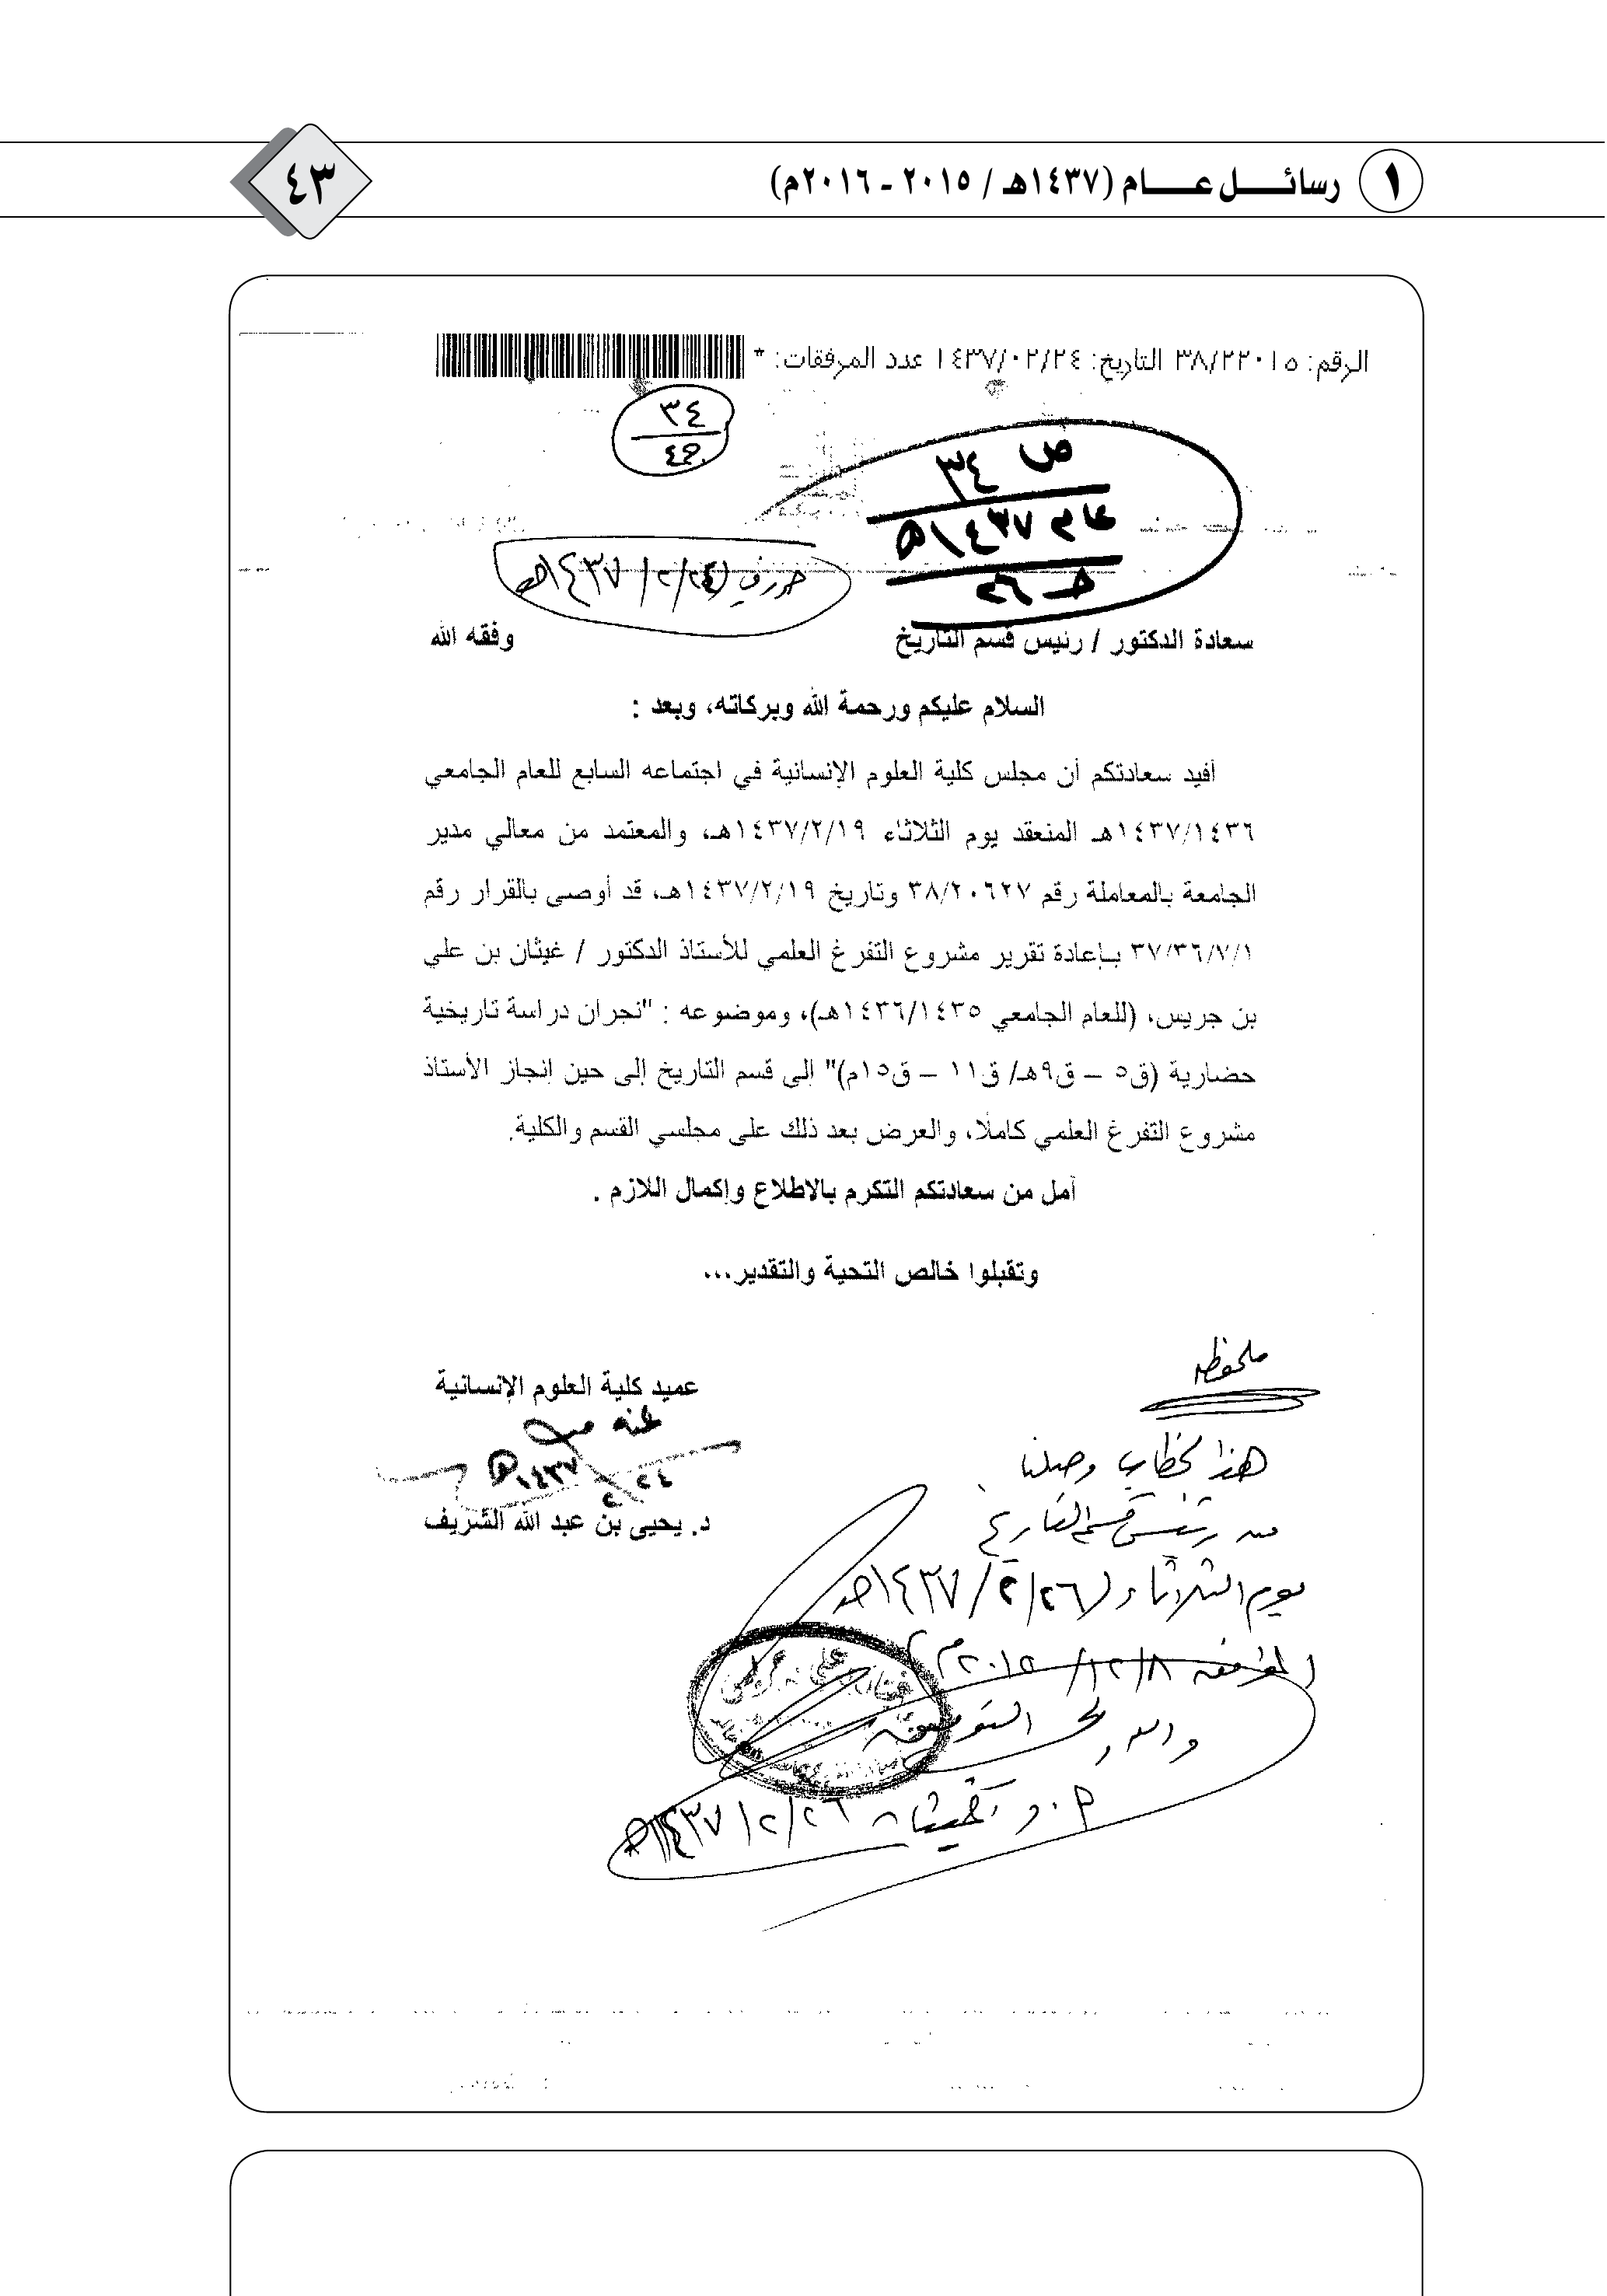 ١ رسائل عام (١٤٣٧هـ / ٢٠١٥ - ٢٠١٦م)
٤٣
الرقم: ٣٨/٢٢٠١٥ التاريخ: ١٤٣٧/٠٢/٢٤ عدد المرفقات: *
٣٤
ص ٣٤
عام ١٤٣٧هـ
١٤٣٧/٢/٢٤هـ
سعادة الدكتور / رئيس قسم التاريخ وفقه الله
السلام عليكم ورحمة الله وبركاته، وبعد :
أفيد سعادتكم أن مجلس كلية العلوم الإنسانية في اجتماعه السابع للعام الجامعي
١٤٣٧/١٤٣٦هـ المنعقد يوم الثلاثاء ١٤٣٧/٢/١٩هـ، والمعتمد من معالي مدير
الجامعة بالمعاملة رقم ٣٨/٢٠٦٢٧ وتاريخ ١٤٣٧/٢/١٩هـ، قد أوصى بالقرار رقم
٣٧/٣٦/٧/١ بإعادة تقرير مشروع التفرغ العلمي للأستاذ الدكتور / غيثان بن علي
بن جريس، (للعام الجامعي ١٤٣٦/١٤٣٥هـ)، وموضوعه : "نجران دراسة تاريخية
حضارية (ق٥ – ق٩هـ/ ق١١ – ق١٥م)" إلى قسم التاريخ إلى حين إنجاز الأستاذ
مشروع التفرغ العلمي كاملا، والعرض بعد ذلك على مجلسي القسم والكلية.
آمل من سعادتكم التكرم بالاطلاع وإكمال اللازم .
وتقبلوا خالص التحية والتقدير...
عميد كلية العلوم الإنسانية
٢٤/٢/١٤٣٧هـ
د. يحيى بن عبد الله الشريف
ملحوظة
هذا الخطاب وصلنا
من رئيس قسم التاريخ
يوم الثلاثاء ٢٦/٢/١٤٣٧هـ
الموافق ٨/١٢/٢٠١٥م
والله ولي التوفيق
أ.د. غيثان ٢٦/٢/١٤٣٧هـ